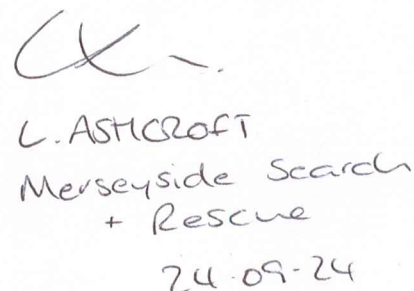 L. ASHCROFT
Merseyside Search
+ Rescue
24-09-24